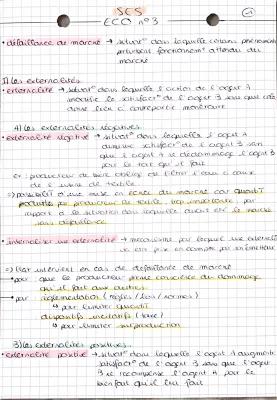 SES
ECO n°3
• défaillance de marché → situat° dans laquelle certains phénomènes
perturbent fonctionnemt attendu du
marché
I) Les externalités
• externalité → situat° dans laquelle l'action de l'agent A
modifie le satisfact° de l'agent B sans que cela
donne lieu à contrepartie monétaire
A) Les externalités négatives
• externalité négative → situat° dans laquelle l'agent A
diminue satisfact° de l'agent B sans
que l'agent A ne dédommage l'agent B
pour le tort qu'il fait
ex : producteur de bière obligé de filtrer l'eau à cause
de l'usine de textile
=> possibilité d'une mise en échec du marché car quantité
produite par producteur de textile trop importante par
rapport à la situation dans laquelle aurait été le marché
sans défaillance
• internaliser une externalité → mécanisme par lequel une externalité
est prise en compte par son émetteur
=> État intervient en cas de défaillance de marché
• pour que le producteur prenne conscience du dommage
qu'il fait aux autres
• par réglementation (règles / lois / normes)
→ pour limiter quantité
dispositifs incitatifs (taxe)
→ pour limiter surproduction
B) Les externalités positives
• externalité positive → situat° dans laquelle l'agent A augmente
satisfact° de l'agent B sans que l'agent
B ne récompense l'agent A pour le
bienfait qu'il leur fait